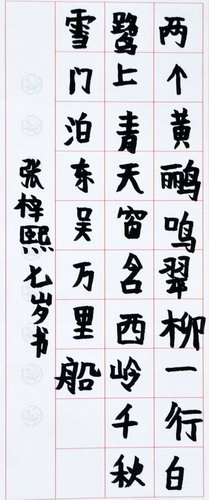 两个黄鹂鸣翠柳一行白
鹭上青天窗含西岭千秋
雪门泊东吴万里船
张梓熙七岁书